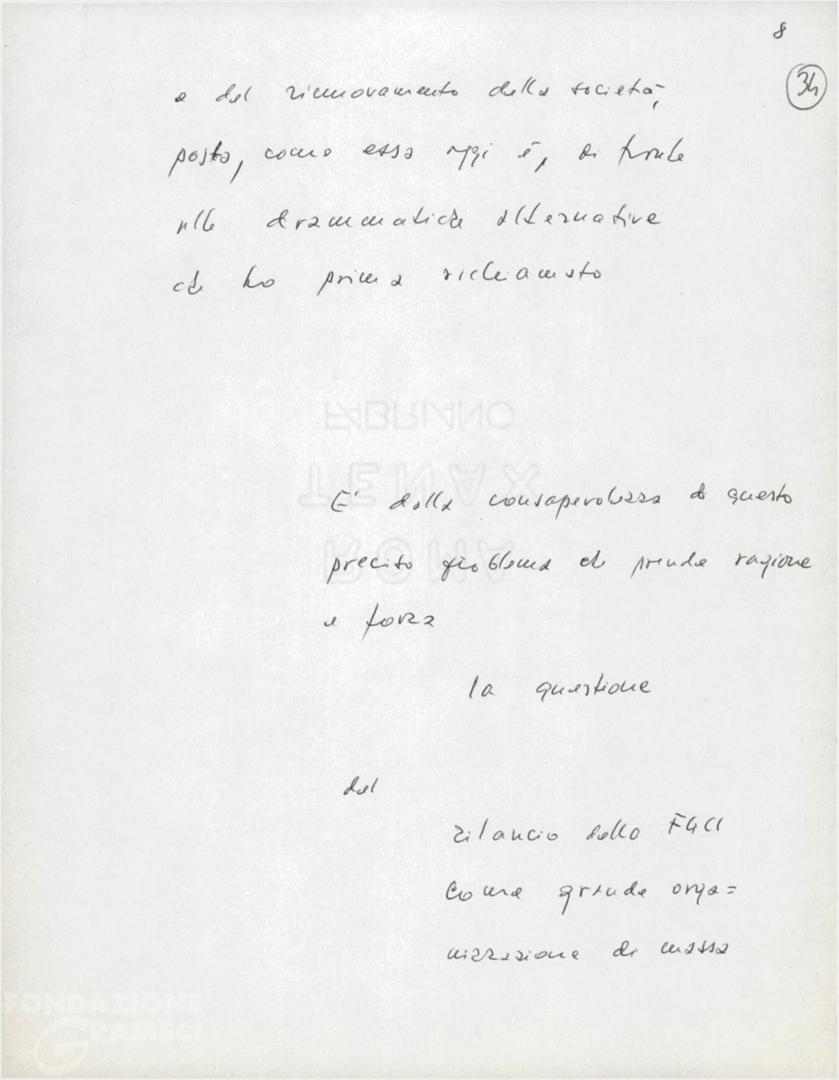 8
34
e del rinnovamento della società,
posta, come essa oggi è, di fronte
alle drammatiche alternative
che ho prima richiamato
FABRIANO
TENAX
ROMA
E' dalla consapevolezza di questo
preciso problema che prende ragione
e forza
la questione
del
rilancio della FGCI
come grande orga=
nizzazione di massa
FONDAZIONE
GRAMSCI